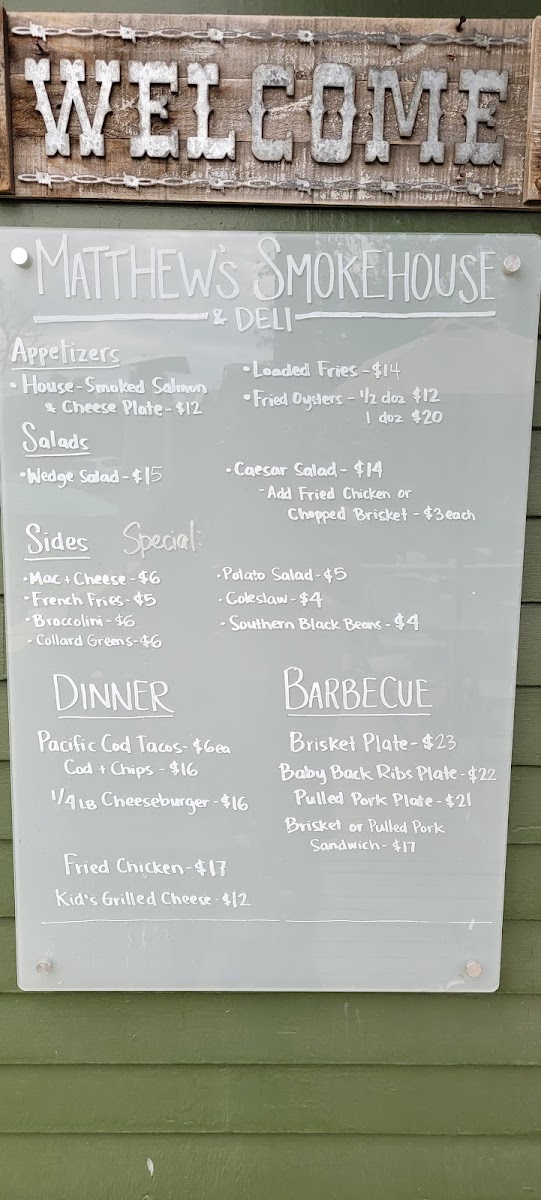 WELCOME
MATTHEW'S SMOKEHOUSE
& DELI
Appetizers
• House-Smoked Salmon
& Cheese Plate - $12
• Loaded Fries - $14
• Fried Oysters - 1/2 doz $12
1 doz $20
Salads
• Wedge Salad - $15
• Caesar Salad - $14
- Add Fried Chicken or
Chopped Brisket - $3 each
Sides Special:
• Mac + Cheese - $6
• French Fries - $5
• Broccolini - $6
• Collard Greens - $6
• Potato Salad - $5
• Coleslaw - $4
• Southern Black Beans - $4
DINNER
Pacific Cod Tacos - $6ea
Cod + Chips - $16
1/4 LB Cheeseburger - $16
Fried Chicken - $17
Kid's Grilled Cheese - $12
BARBECUE
Brisket Plate - $23
Baby Back Ribs Plate - $22
Pulled Pork Plate - $21
Brisket or Pulled Pork
Sandwich - $17